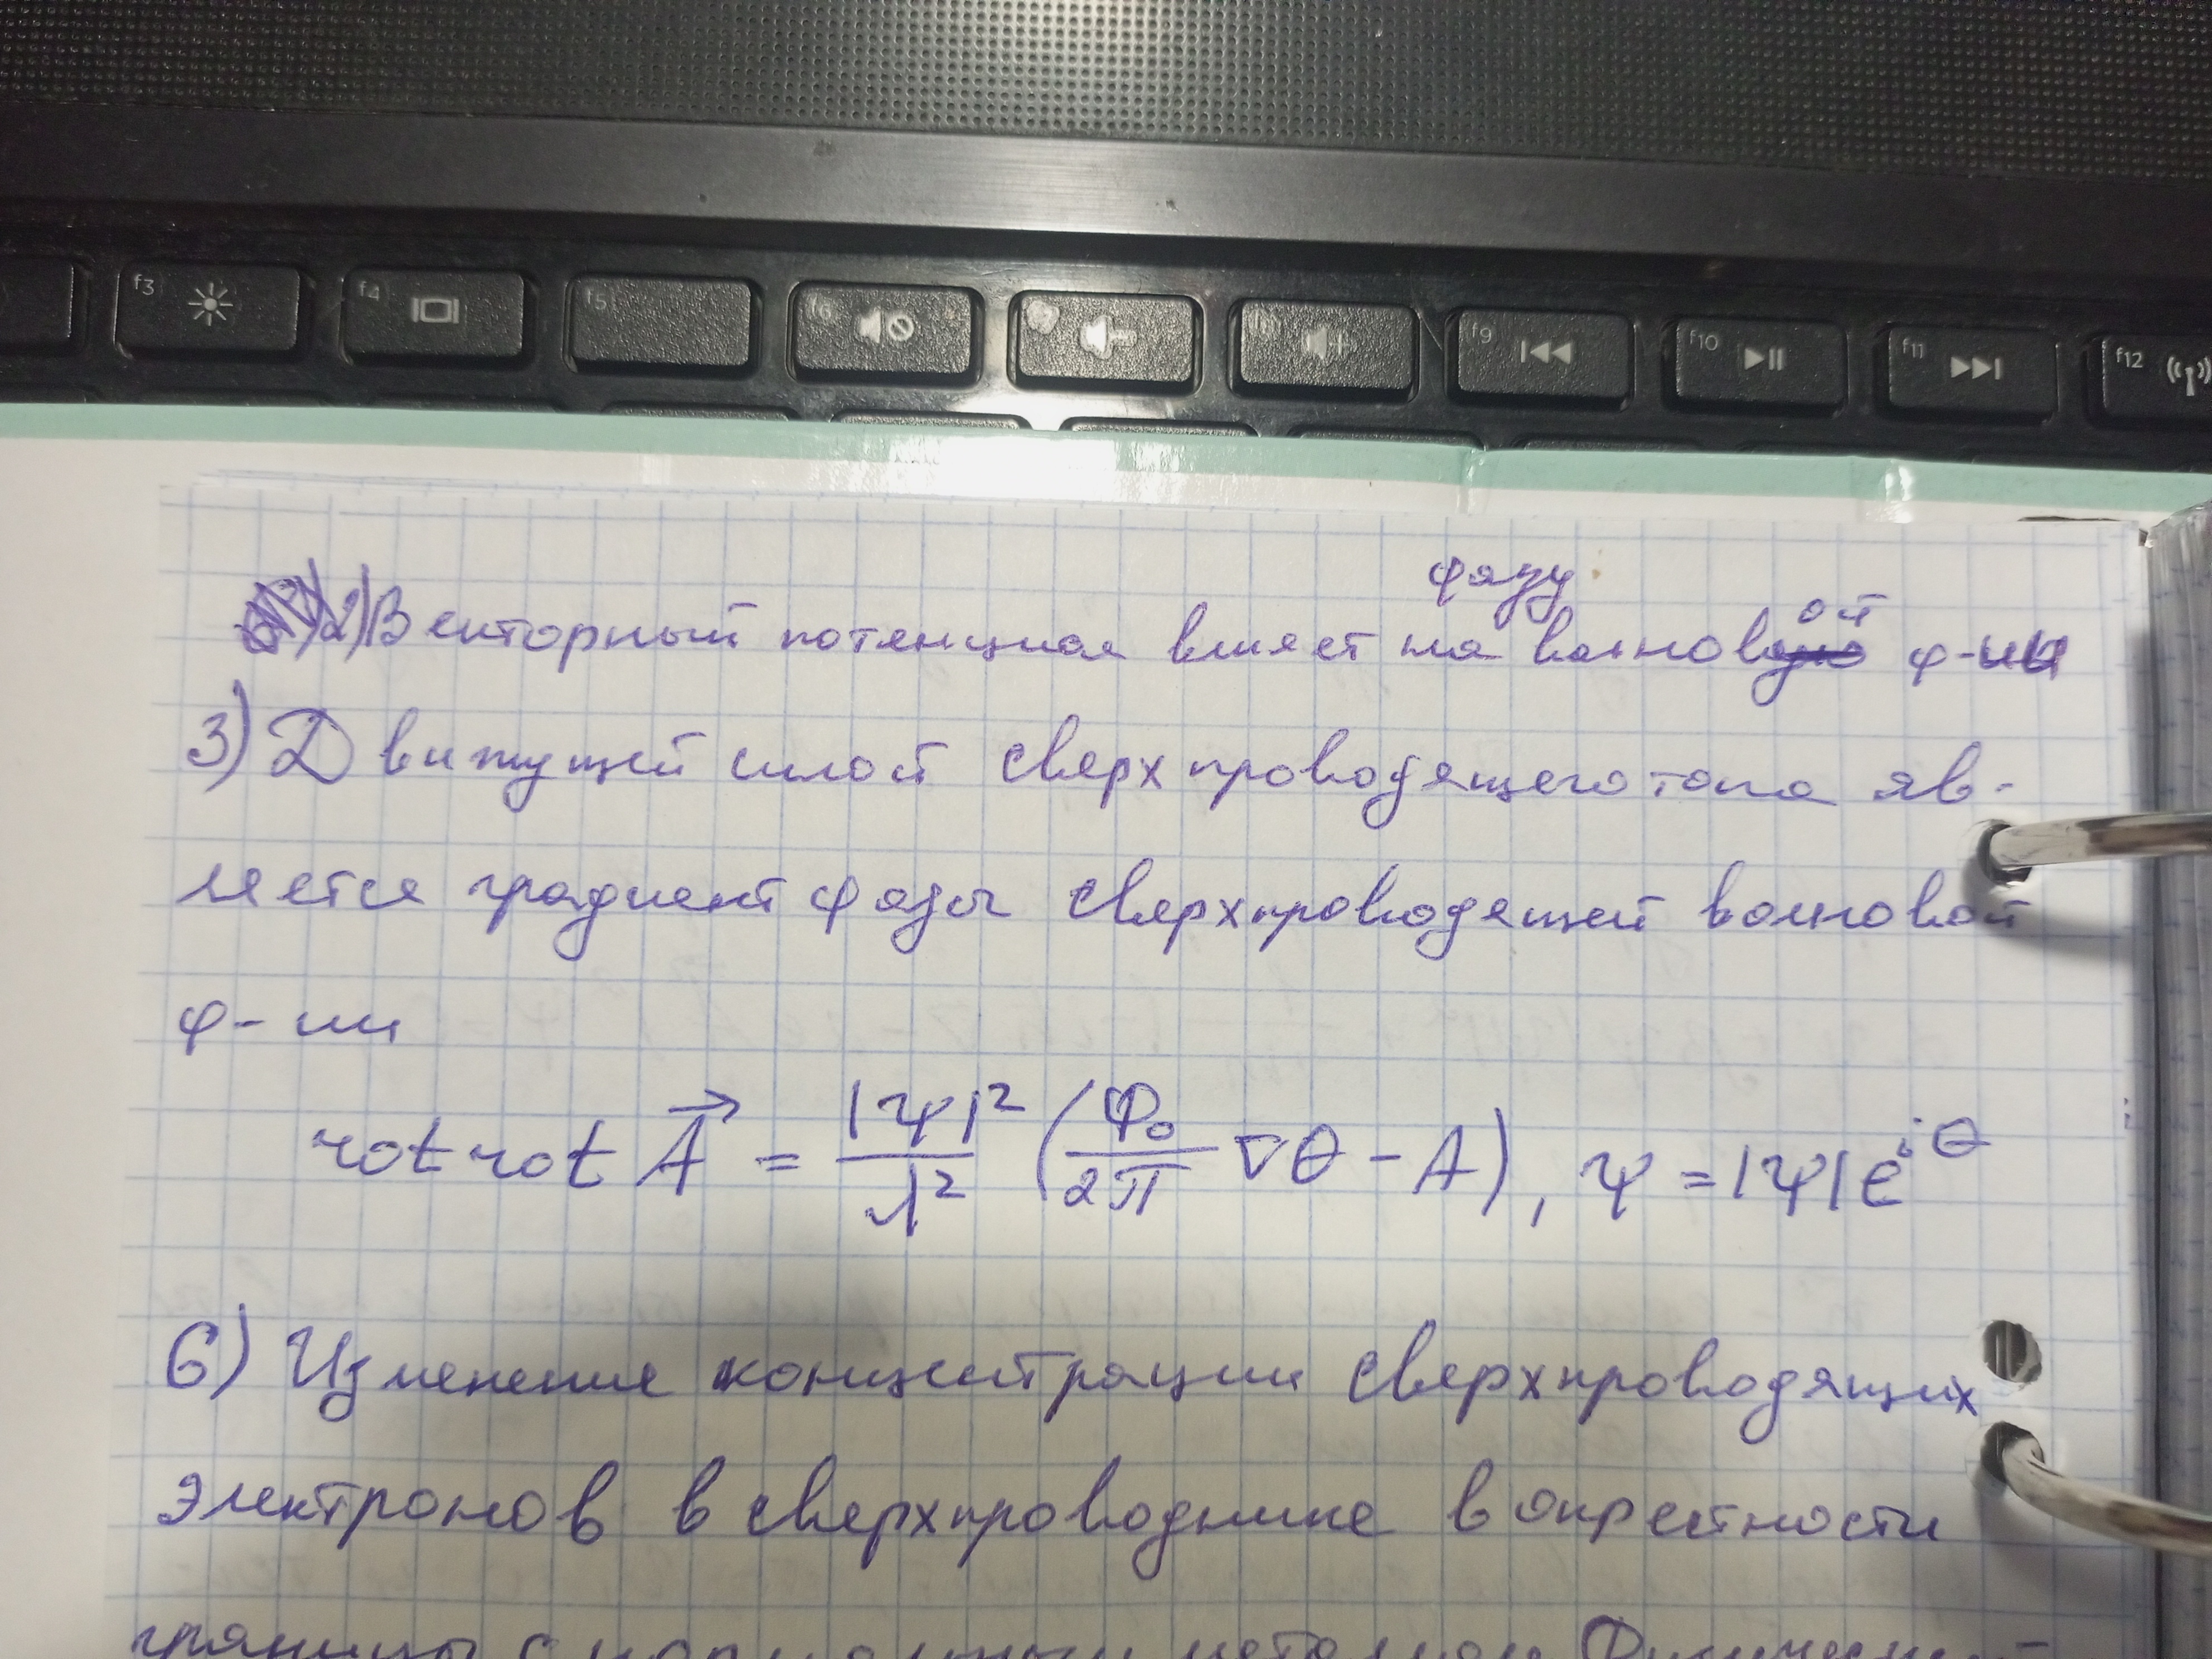 f3 f4 f5 f6 f9 f10 f11 f12
фазу
ой
2) Векторный потенциал влияет на волнов ф-ии
3) Движущей силой сверхпроводящего тока яв-
ляется градиент фазы сверхпроводящей волновой
ф-ии
rot rot A⃗ = |ψ|²/λ² (Φ₀/2π ∇θ - A), ψ = |ψ|e^{iθ}
6) Изменение концентрации сверхпроводящих
электронов в сверхпроводнике в окрестности
границы с нормальным металлом Физический